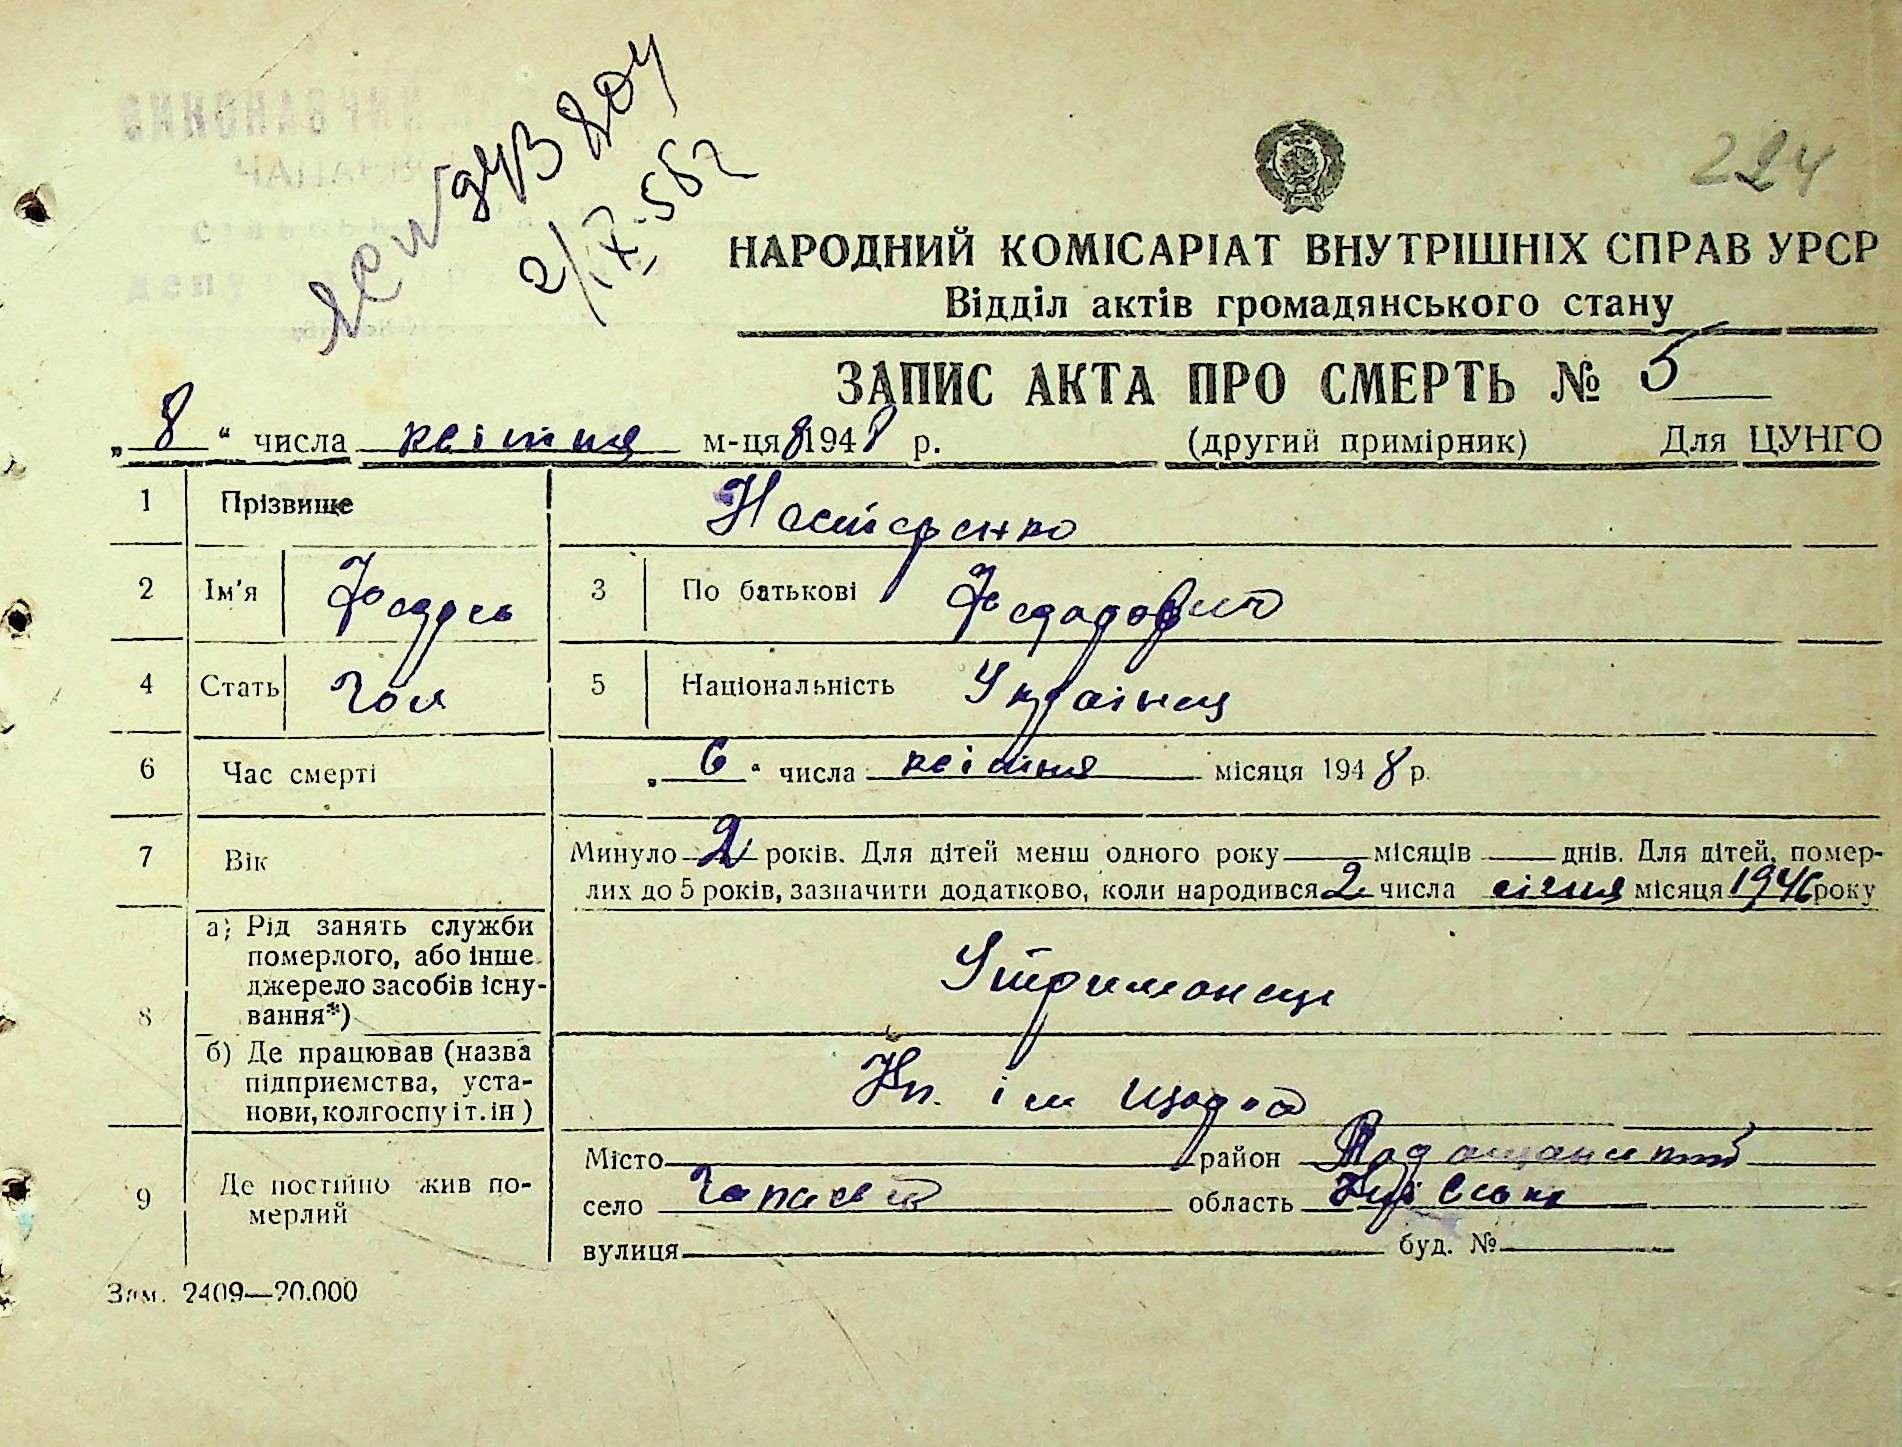 224
2/IX-56г
НАРОДНИЙ КОМІСАРІАТ ВНУТРІШНІХ СПРАВ УРСР
Відділ актів громадянського стану
ЗАПИС АКТА ПРО СМЕРТЬ № 5
„ 8 “ числа квітня м-ця 8 1948 р. (другий примірник) Для ЦУНГО
1 Прізвище Нестеренко
2 Ім'я Федось 3 По батькові Федорович
4 Стать Чол 5 Національність Українец
6 Час смерті „ 6 “ числа квітня місяця 1948 р.
7 Вік Минуло 2 років. Для дітей менш одного року місяців днів. Для дітей, помер-
лих до 5 років, зазначити додатково, коли народився 2 числа січня місяця 1946 року
8 а) Рід занять служби
померлого, або інше
джерело засобів існу-
вання*) Утриманец
б) Де працював (назва
підприємства, уста-
нови, колгоспу і т. ін) Кп. ім Щорса
9 Де постійно жив по-
мерлий
Місто район
село область Київська
вулиця буд. №
Зам. 2409—20.000